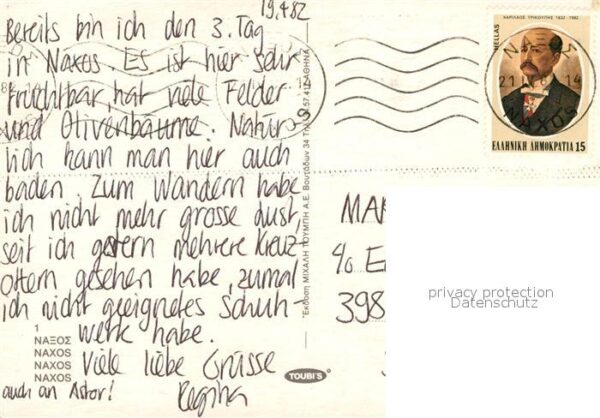 19.4.82
Bereits bin ich den 3. Tag
in Naxos. Es ist hier sehr
fruchtbar, hat viele Felder
und Olivenbäume. Natür-
lich kann man hier auch
baden. Zum Wandern habe
ich nicht mehr grosse Lust,
seit ich gestern mehrere Kreuz
ottern gesehen habe, zumal
ich nicht geeignetes Schuh-
werk habe.
Viele liebe Grüsse
auch an Astor! Regina
1
ΝΑΞΟΣ
NAXOS
NAXOS
NAXOS
Έκδοση ΜΙΧΑΛΗ ΤΟΥΜΠΗ Α.Ε. Βουτάδων 34 ΑΘΗΝΑ
TOUBI'S
ΧΑΡΙΛΑΟΣ ΤΡΙΚΟΥΠΗΣ 1832-1982
HELLAS
ΕΛΛΗΝΙΚΗ ΔΗΜΟΚΡΑΤΙΑ 15
NAXOS
MAR
c/o E
398
privacy protection
Datenschutz